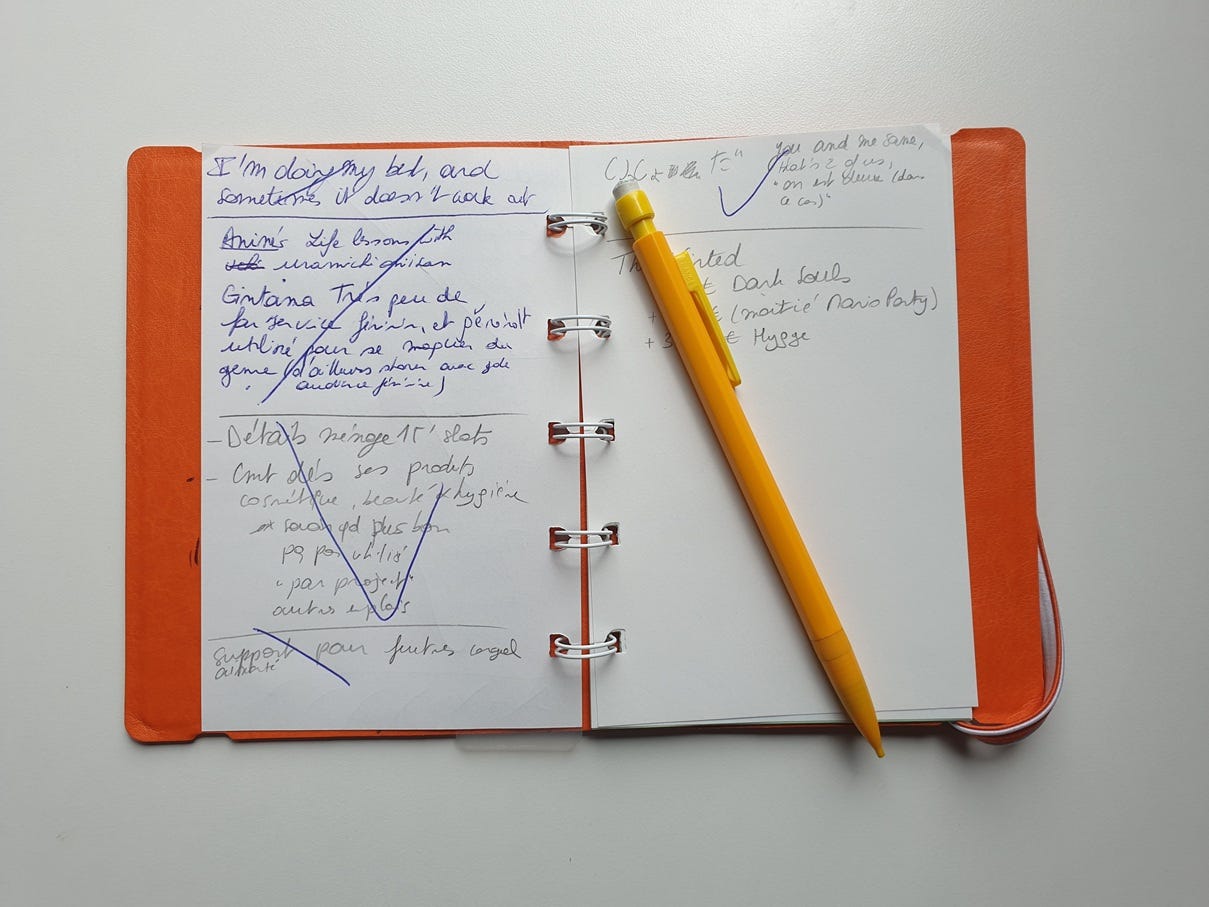 I'm doing my best, and
sometimes it doesn't work out
Animés Life lessons with
uramichi oniisan
Gintama Très peu de
fan service féminin, et
utilisé pour se moquer du
genre (d'ailleurs shonen avec gde
audience féminine)
- Détails ménage 15' slots
- Cmt dés ses produits
cosmétique, beauté & hygiène
savon qd plus bon
pq pas utilisé
"par project"
autres emplois
Support pour futures
you and me same,
that's 2 of us,
"on est deux (dans
ce cas)"
Dark Souls
+ € (moitié Mario Party)
+ 3 € Hygge